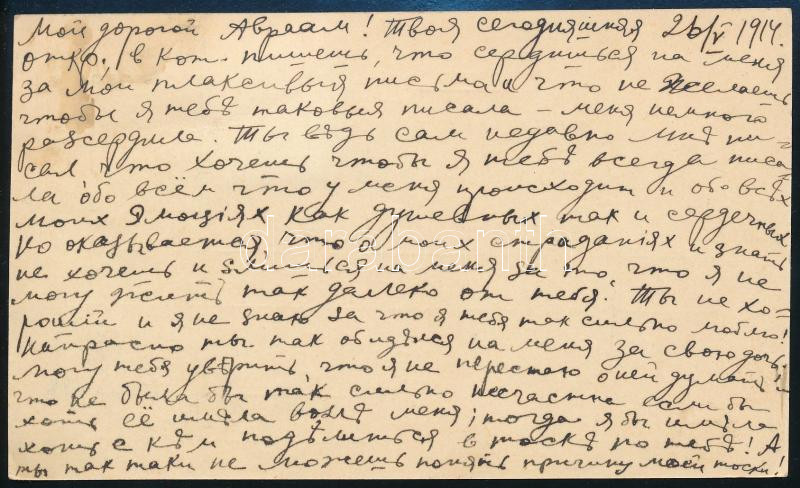 Мой дорогой Авраам! Твоя сегодняшняя 26/V 1914.
откр. в кот. пишешь, что сердишься на меня
за мои плаксивыя письма и что не желаешь
чтобы я тебѣ таковыя писала – меня немного
разсердила. Ты вѣдь сам недавно мнѣ пи-
сал что хочешь чтобы я тебѣ всегда писа-
ла обо всём что у меня происходит и обо всѣх
моих эмоціях как душевных так и сердечных
Но оказывается, что о моих страданіях и знать
не хочешь и злишься на меня за то, что я не
могу жить так далеко от тебя. Ты не хо-
рошій и я не знаю за что я тебя так сильно люблю!
Напрасно ты так обидѣлся на меня за свою дочь,
могу тебя увѣрить, что я не перестаю о ней думать и
что не была бы так сильно несчастна если бы
хоть её имѣла возлѣ меня; тогда я бы имѣла
хоть с кѣм подѣлиться в тоскѣ по тебѣ! А
ты так таки не можешь понять причину моей тоски!
darabanth